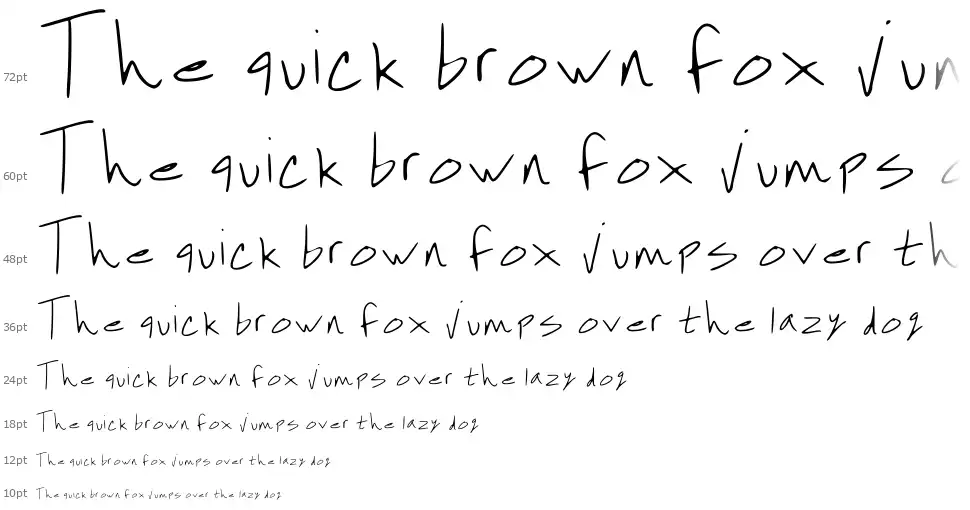 72pt The quick brown fox jun
60pt The quick brown fox jumps
48pt The quick brown fox jumps over th
36pt The quick brown fox jumps over the lazy dog
24pt The quick brown fox jumps over the lazy dog
18pt The quick brown fox jumps over the lazy dog
12pt The quick brown fox jumps over the lazy dog
10pt The quick brown fox jumps over the lazy dog